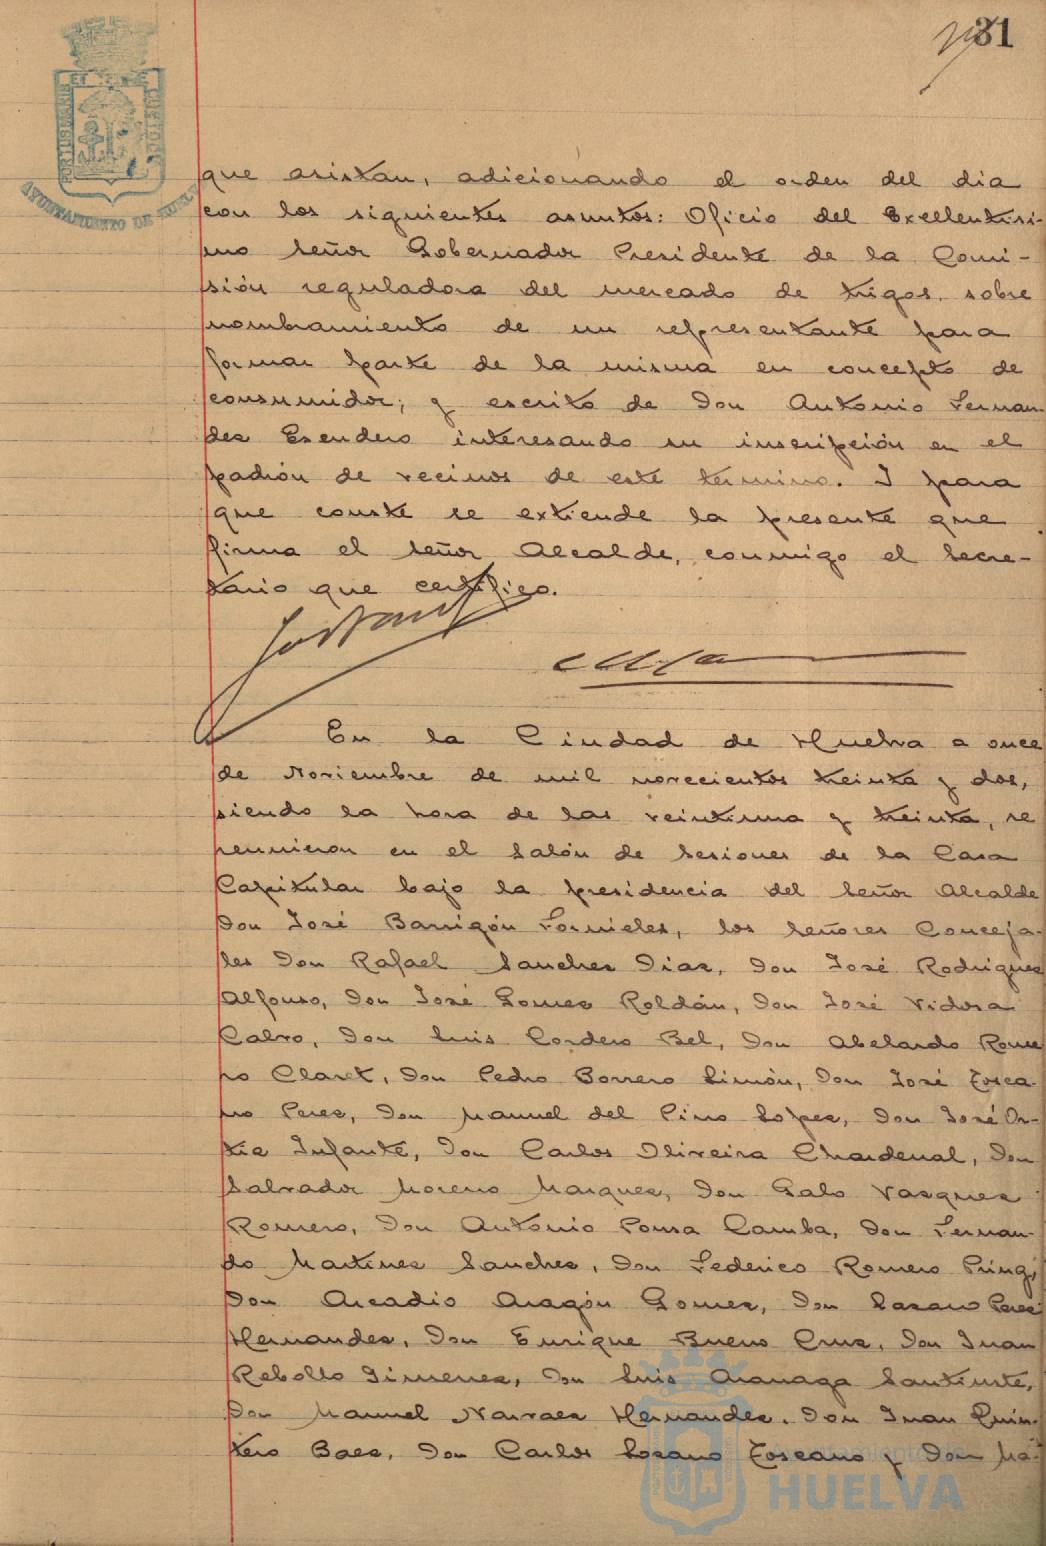 31
PORTUS MARIS ET TERRE CUSTODIA
AYUNTAMIENTO DE HUELVA
que asistan, adicionando el orden del dia
con los siguientes asuntos: Oficio del Excellentisi-
mo Señor Gobernador Presidente de la Comi-
sión reguladora del mercado de trigos, sobre
nombramiento de un representante para
formar parte de la misma en concepto de
consumidor; y escrito de Don Antonio Fernan-
dez Escudero interesando su inscripción en el
padrón de vecinos de este termino. Y para
que conste se extiende la presente que
firma el Señor Alcalde, conmigo el Secre-
tario que certifico.
En la Ciudad de Huelva a once
de Noviembre de mil novecientos treinta y dos,
siendo la hora de las veintiuna y treinta, se
reunieron en el Salón de Sesiones de la Casa
Capitular bajo la presidencia del Señor Alcalde
Don José Barrigón Fornieles, los Señores Conceja-
les Don Rafael Sanchez Diaz, Don José Rodriguez
Alfonso, Don José Gomez Roldán, Don José Vidosa
Calvo, Don Luis Cordero Bel, Don Abelardo Rome
ro Claret, Don Pedro Borrero Limón, Don José Tosca-
no Perez, Don Manuel del Pino Lopez, Don José Or-
tiz Infante, Don Carlos Oliveira Chardenal, Don
Salvador Moreno Marquez, Don Galo Vazquez
Romero, Don Antonio Ponsa Camba, Don Fernan-
do Martinez Sanchez, Don Federico Romero
Don Arcadio Aragón Gomez, Don Lazaro Perez
Hernandez, Don Enrique Bueno Cruz, Don Juan
Rebollo Jimenez, Don Luis
Don Manuel Narvaez Hernandez, Don Juan Quin-
tero Baez, Don Carlos Lozano Toscano y Don Ma-
Ayuntamiento de
HUELVA